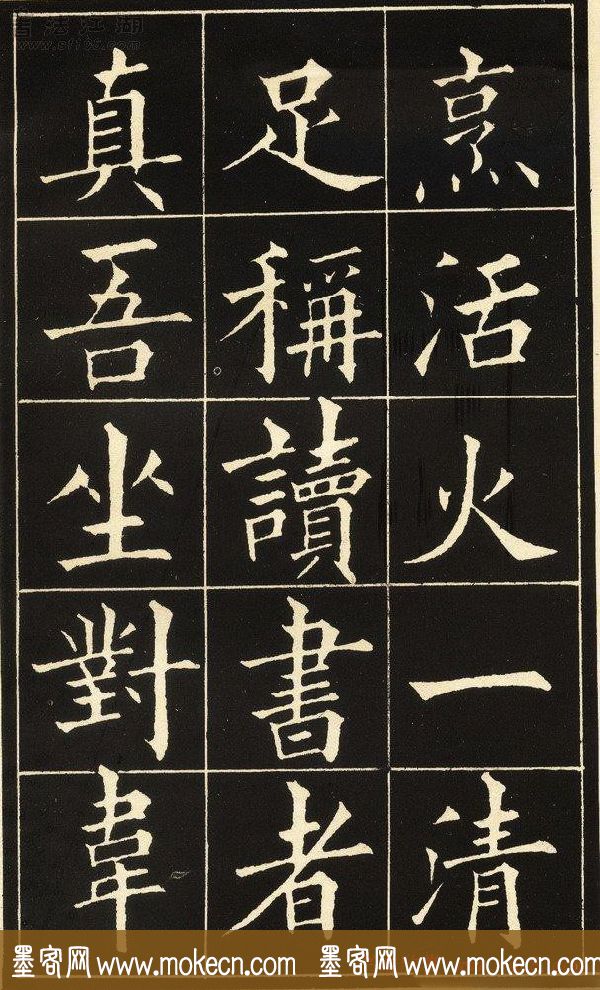 烹活火一清
足稱讀書者
真吾坐對韋
墨客网 www.mokecn.com 墨客网 www.mokecn.com